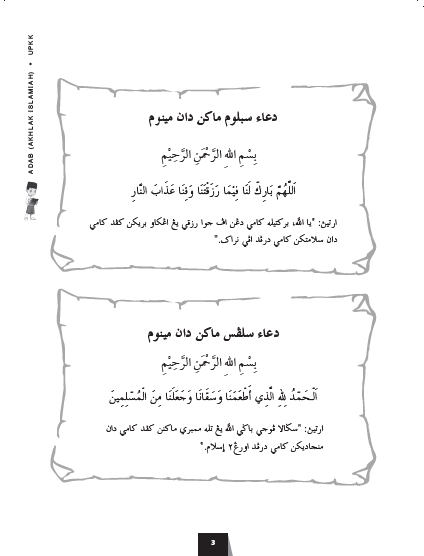 ADAB (AKHLAK ISLAMIAH) • UPKK
دعاء سبلوم ماکن دان مينوم
بِسْمِ اللهِ الرَّحْمَنِ الرَّحِيْمِ
اَللَّهُمَّ بَارِكْ لَنَا فِيْمَا رَزَقْتَنَا وَقِنَا عَذَابَ النَّارِ
ارتيڽ: "يا الله، برکتيله کامي دڠن اڤ جوا رزقي يڠ اڠکاو بريکن کڤد کامي
دان سلامتکن کامي درڤد اڤي نراک."
دعاء سلڤس ماکن دان مينوم
بِسْمِ اللهِ الرَّحْمَنِ الرَّحِيْمِ
اَلْحَمْدُ لِلهِ الَّذِي أَطْعَمَنَا وَسَقَانَا وَجَعَلَنَا مِنَ الْمُسْلِمِينَ
ارتيڽ: "سڬالا ڤوجي باڬي الله يڠ تله ممبري ماکنن کڤد کامي دان
منجاديکن کامي درڤد اورڠ٢ إسلام."
3